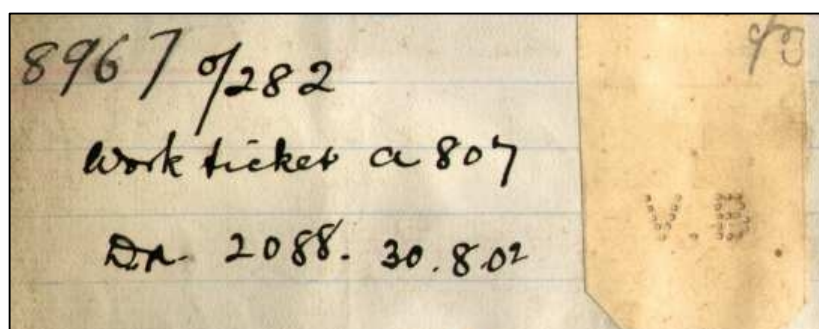 8967 o/282
Work ticket a 807
Dn. 2088. 30.8.02
V.B